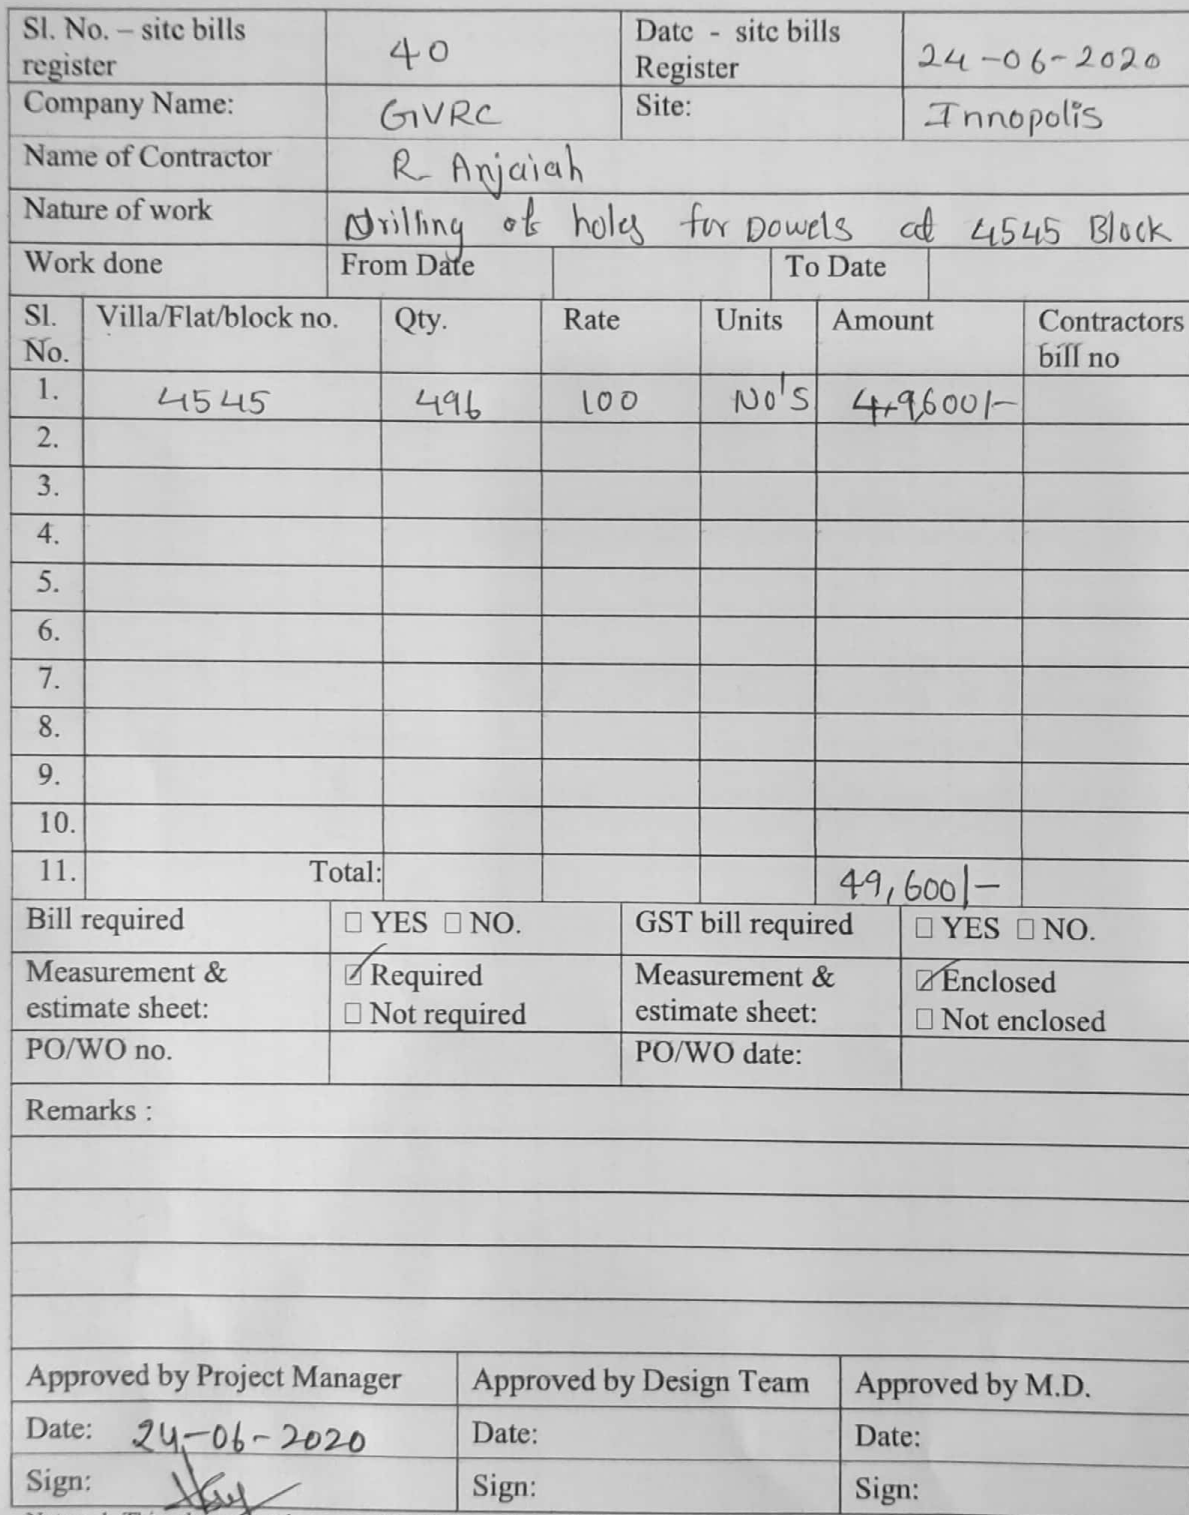 Sl. No. – site bills register 40 Date - site bills Register 24-06-2020
Company Name: GVRC Site: Innopolis
Name of Contractor R. Anjaiah
Nature of work Drilling of holes for Dowels at 4545 Block
Work done From Date To Date
Sl. No. Villa/Flat/block no. Qty. Rate Units Amount Contractors bill no
1. 4545 496 100 No's 49,600/-
2.
3.
4.
5.
6.
7.
8.
9.
10.
11. Total: 49,600/-
Bill required ☐ YES ☐ NO. GST bill required ☐ YES ☐ NO.
Measurement & estimate sheet: ☑ Required ☐ Not required Measurement & estimate sheet: ☑ Enclosed ☐ Not enclosed
PO/WO no. PO/WO date:
Remarks :
Approved by Project Manager Approved by Design Team Approved by M.D.
Date: 24-06-2020 Date: Date:
Sign: Sign: Sign: